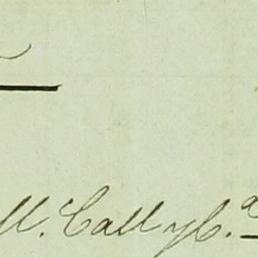 M. Call y C.ª